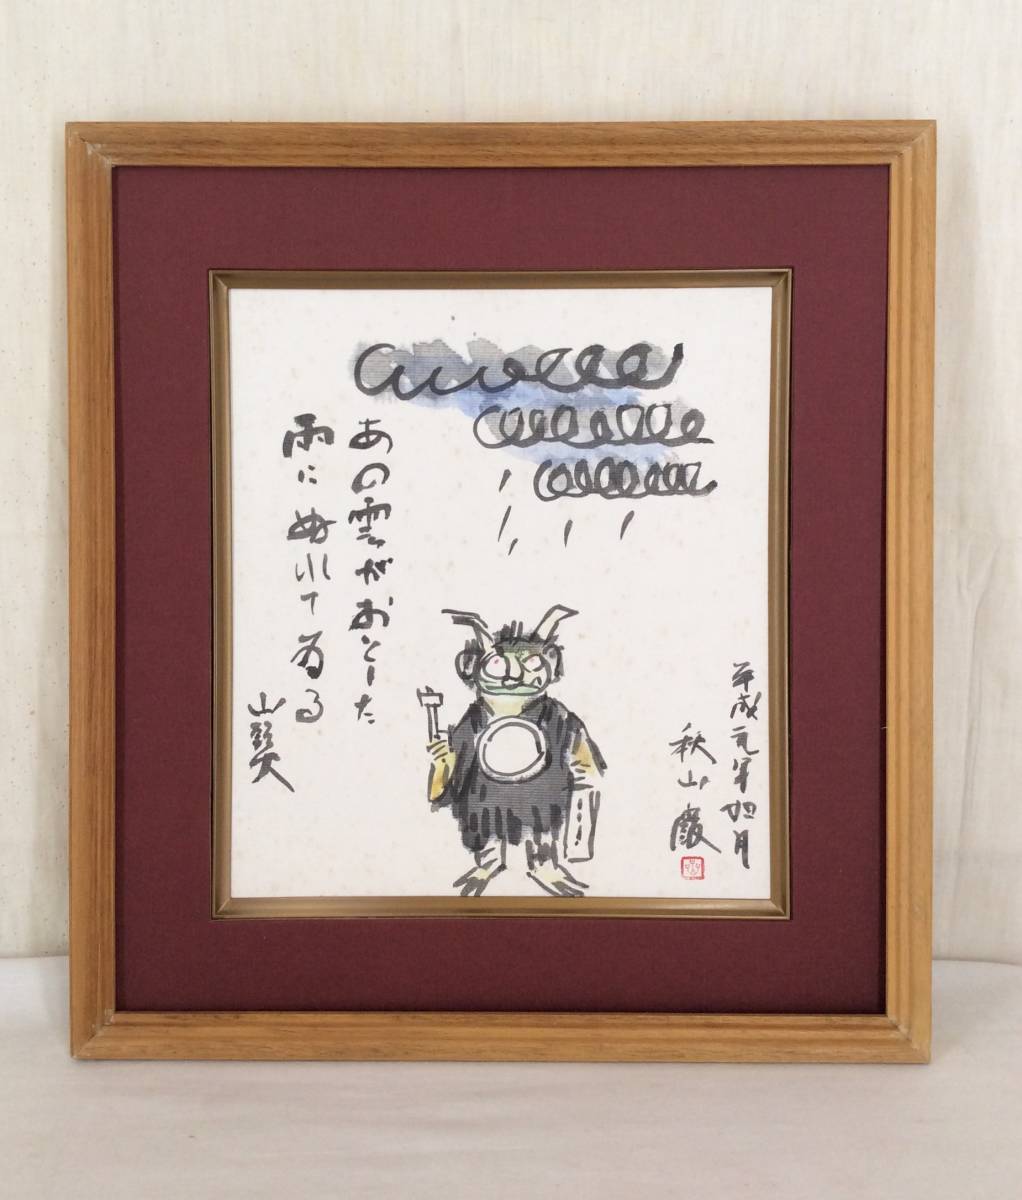 あの雲がおとした
雨にぬれてゐる
山頭火
平成元年如月
秋山巌